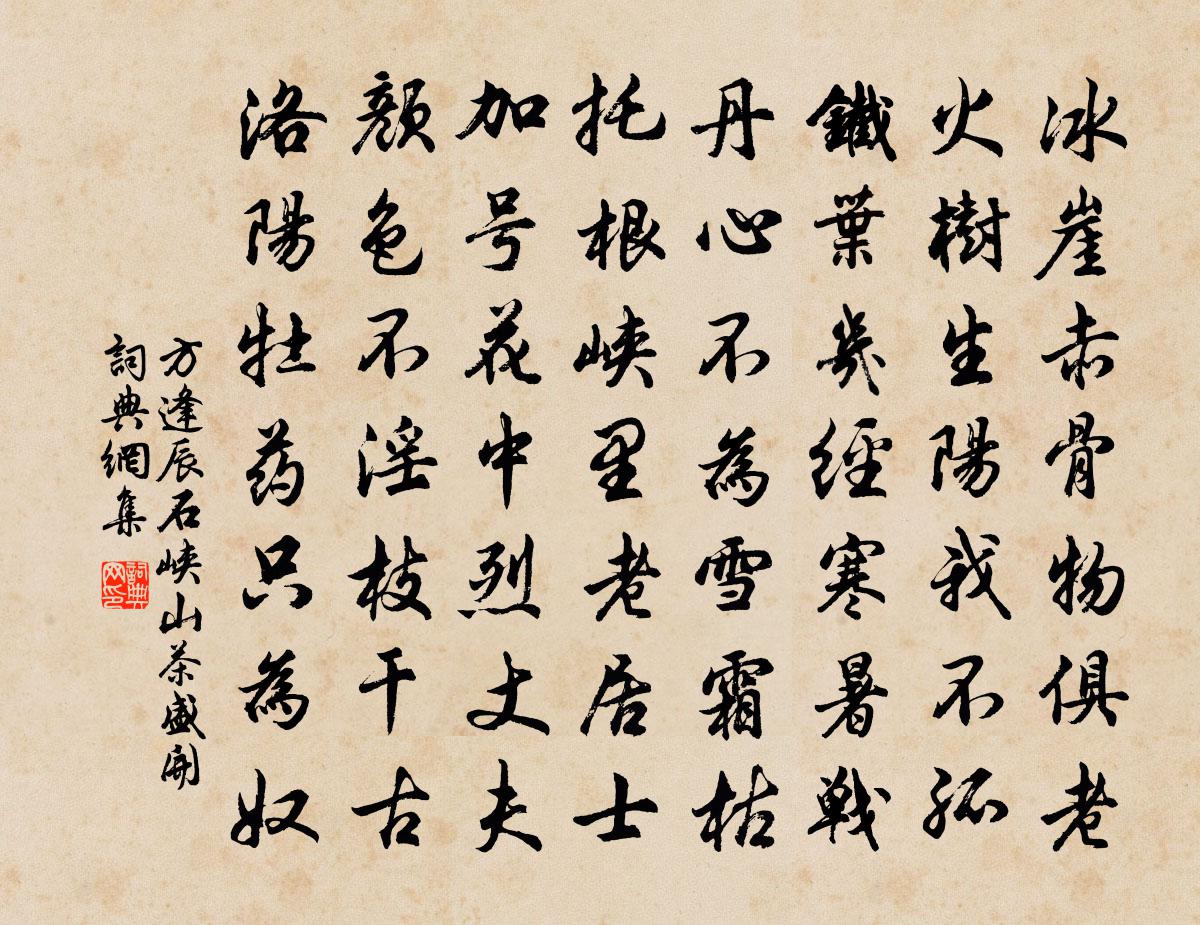 冰崖赤骨物俱老
火樹生陽我不孤
鐵葉幾經寒暑戰
丹心不為雪霜枯
托根峽里老居士
加号花中烈丈夫
顏色不淫枝干古
洛陽牡药只為奴
方逢辰石峽山茶盛開
詞典網集
詞典网印